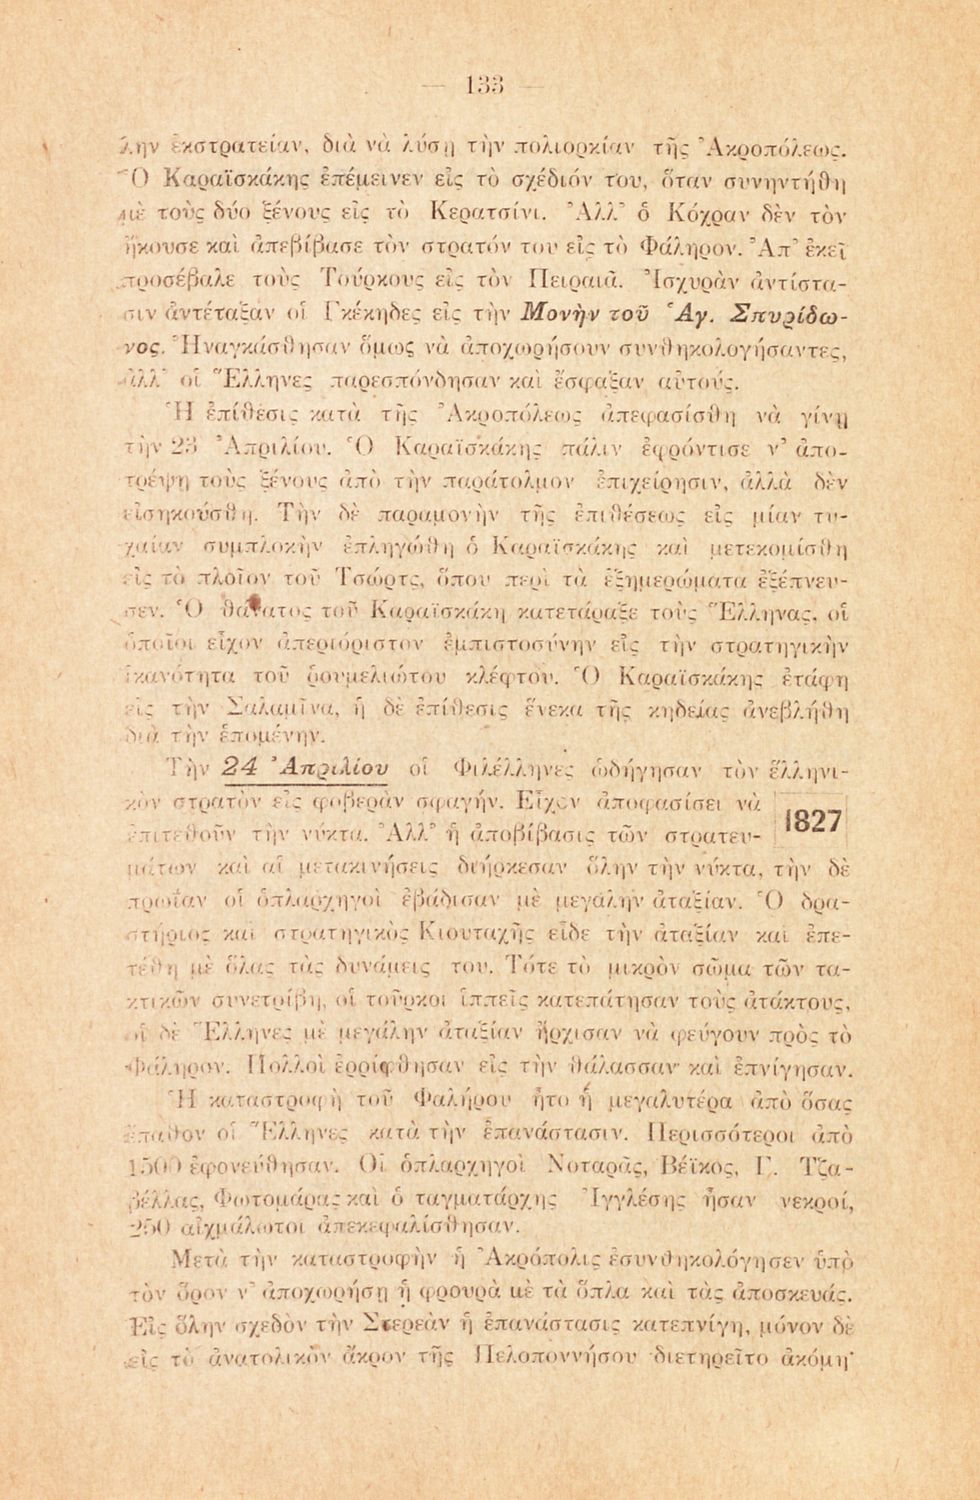 — 133 —
λην ἐκστρατείαν, διὰ νὰ λύσῃ τὴν πολιορκίαν τῆς Ἀκροπόλεως.
Ὁ Καραϊσκάκης ἐπέμεινεν εἰς τὸ σχέδιόν του, ὅταν συνηντήθη
μὲ τοὺς δύο ξένους εἰς τὸ Κερατσίνι. Ἀλλ' ὁ Κόχραν δὲν τὸν
ἤκουσε καὶ ἀπεβίβασε τὸν στρατόν του εἰς τὸ Φάληρον. Ἀπ' ἐκεῖ
προσέβαλε τοὺς Τούρκους εἰς τὸν Πειραιᾶ. Ἰσχυρὰν ἀντίστα-
σιν ἀντέταξαν οἱ Γκέκηδες εἰς τὴν Μονὴν τοῦ Ἁγ. Σπυρίδω-
νος. Ἠναγκάσθησαν ὅμως νὰ ἀποχωρήσουν συνθηκολογήσαντες,
ἀλλ' οἱ Ἕλληνες παρεσπόνδησαν καὶ ἔσφαξαν αὐτούς.
Ἡ ἐπίθεσις κατὰ τῆς Ἀκροπόλεως ἀπεφασίσθη νὰ γίνῃ
τὴν 23 Ἀπριλίου. Ὁ Καραϊσκάκης πάλιν ἐφρόντισε ν' ἀπο-
τρέψῃ τοὺς ξένους ἀπὸ τὴν παράτολμον ἐπιχείρησιν, ἀλλὰ δὲν
εἰσηκούσθη. Τὴν δὲ παραμονὴν τῆς ἐπιθέσεως εἰς μίαν τυ-
χαίαν συμπλοκὴν ἐπληγώθη ὁ Καραϊσκάκης καὶ μετεκομίσθη
εἰς τὸ πλοῖον τοῦ Τσώρτς, ὅπου περὶ τὰ ἐξημερώματα ἐξέπνευ-
σεν. Ὁ θάνατος τοῦ Καραϊσκάκη κατετάραξε τοὺς Ἕλληνας, οἱ
ὁποῖοι εἶχον ἀπεριόριστον ἐμπιστοσύνην εἰς τὴν στρατηγικὴν
ἱκανότητα τοῦ ῥουμελιώτου κλέφτου. Ὁ Καραϊσκάκης ἐτάφη
εἰς τὴν Σαλαμῖνα, ἡ δὲ ἐπίθεσις ἕνεκα τῆς κηδείας ἀνεβλήθη
διὰ τὴν ἑπομένην.
Τὴν 24 Ἀπριλίου οἱ Φιλέλληνες ὡδήγησαν τὸν ἑλληνι-
κὸν στρατὸν εἰς φοβερὰν σφαγήν. Εἶχον ἀποφασίσει νὰ
1827
ἐπιτεθοῦν τὴν νύκτα. Ἀλλ' ἡ ἀποβίβασις τῶν στρατευ-
μάτων καὶ αἱ μετακινήσεις διήρκεσαν ὅλην τὴν νύκτα, τὴν δὲ
πρωΐαν οἱ ὁπλαρχηγοὶ ἐβάδισαν μὲ μεγάλην ἀταξίαν. Ὁ δρα-
στήριος καὶ στρατηγικὸς Κιουταχῆς εἶδε τὴν ἀταξίαν καὶ ἐπε-
τέθη μὲ ὅλας τὰς δυνάμεις του. Τότε τὸ μικρὸν σῶμα τῶν τα-
κτικῶν συνετρίβη, οἱ τοῦρκοι ἱππεῖς κατεπάτησαν τοὺς ἀτάκτους,
οἱ δὲ Ἕλληνες μὲ μεγάλην ἀταξίαν ἤρχισαν νὰ φεύγουν πρὸς τὸ
Φάληρον. Πολλοὶ ἐρρίφθησαν εἰς τὴν θάλασσαν καὶ ἐπνίγησαν.
Ἡ καταστροφὴ τοῦ Φαλήρου ἦτο ἡ μεγαλυτέρα ἀπὸ ὅσας
ἔπαθον οἱ Ἕλληνες κατὰ τὴν ἐπανάστασιν. Περισσότεροι ἀπὸ
1500 ἐφονεύθησαν. Οἱ ὁπλαρχηγοὶ Νοταρᾶς, Βέϊκος, Γ. Τζα-
βέλλας, Φωτομάρας καὶ ὁ ταγματάρχης Ἰγγλέσης ἦσαν νεκροί,
250 αἰχμάλωτοι ἀπεκεφαλίσθησαν.
Μετὰ τὴν καταστροφὴν ἡ Ἀκρόπολις ἐσυνθηκολόγησεν ὑπὸ
τὸν ὅρον ν' ἀποχωρήσῃ ἡ φρουρὰ μὲ τὰ ὅπλα καὶ τὰς ἀποσκευάς.
Εἰς ὅλην σχεδὸν τὴν Στερεὰν ἡ ἐπανάστασις κατεπνίγη, μόνον δὲ
εἰς τὸ ἀνατολικὸν ἄκρον τῆς Πελοποννήσου διετηρεῖτο ἀκόμη·